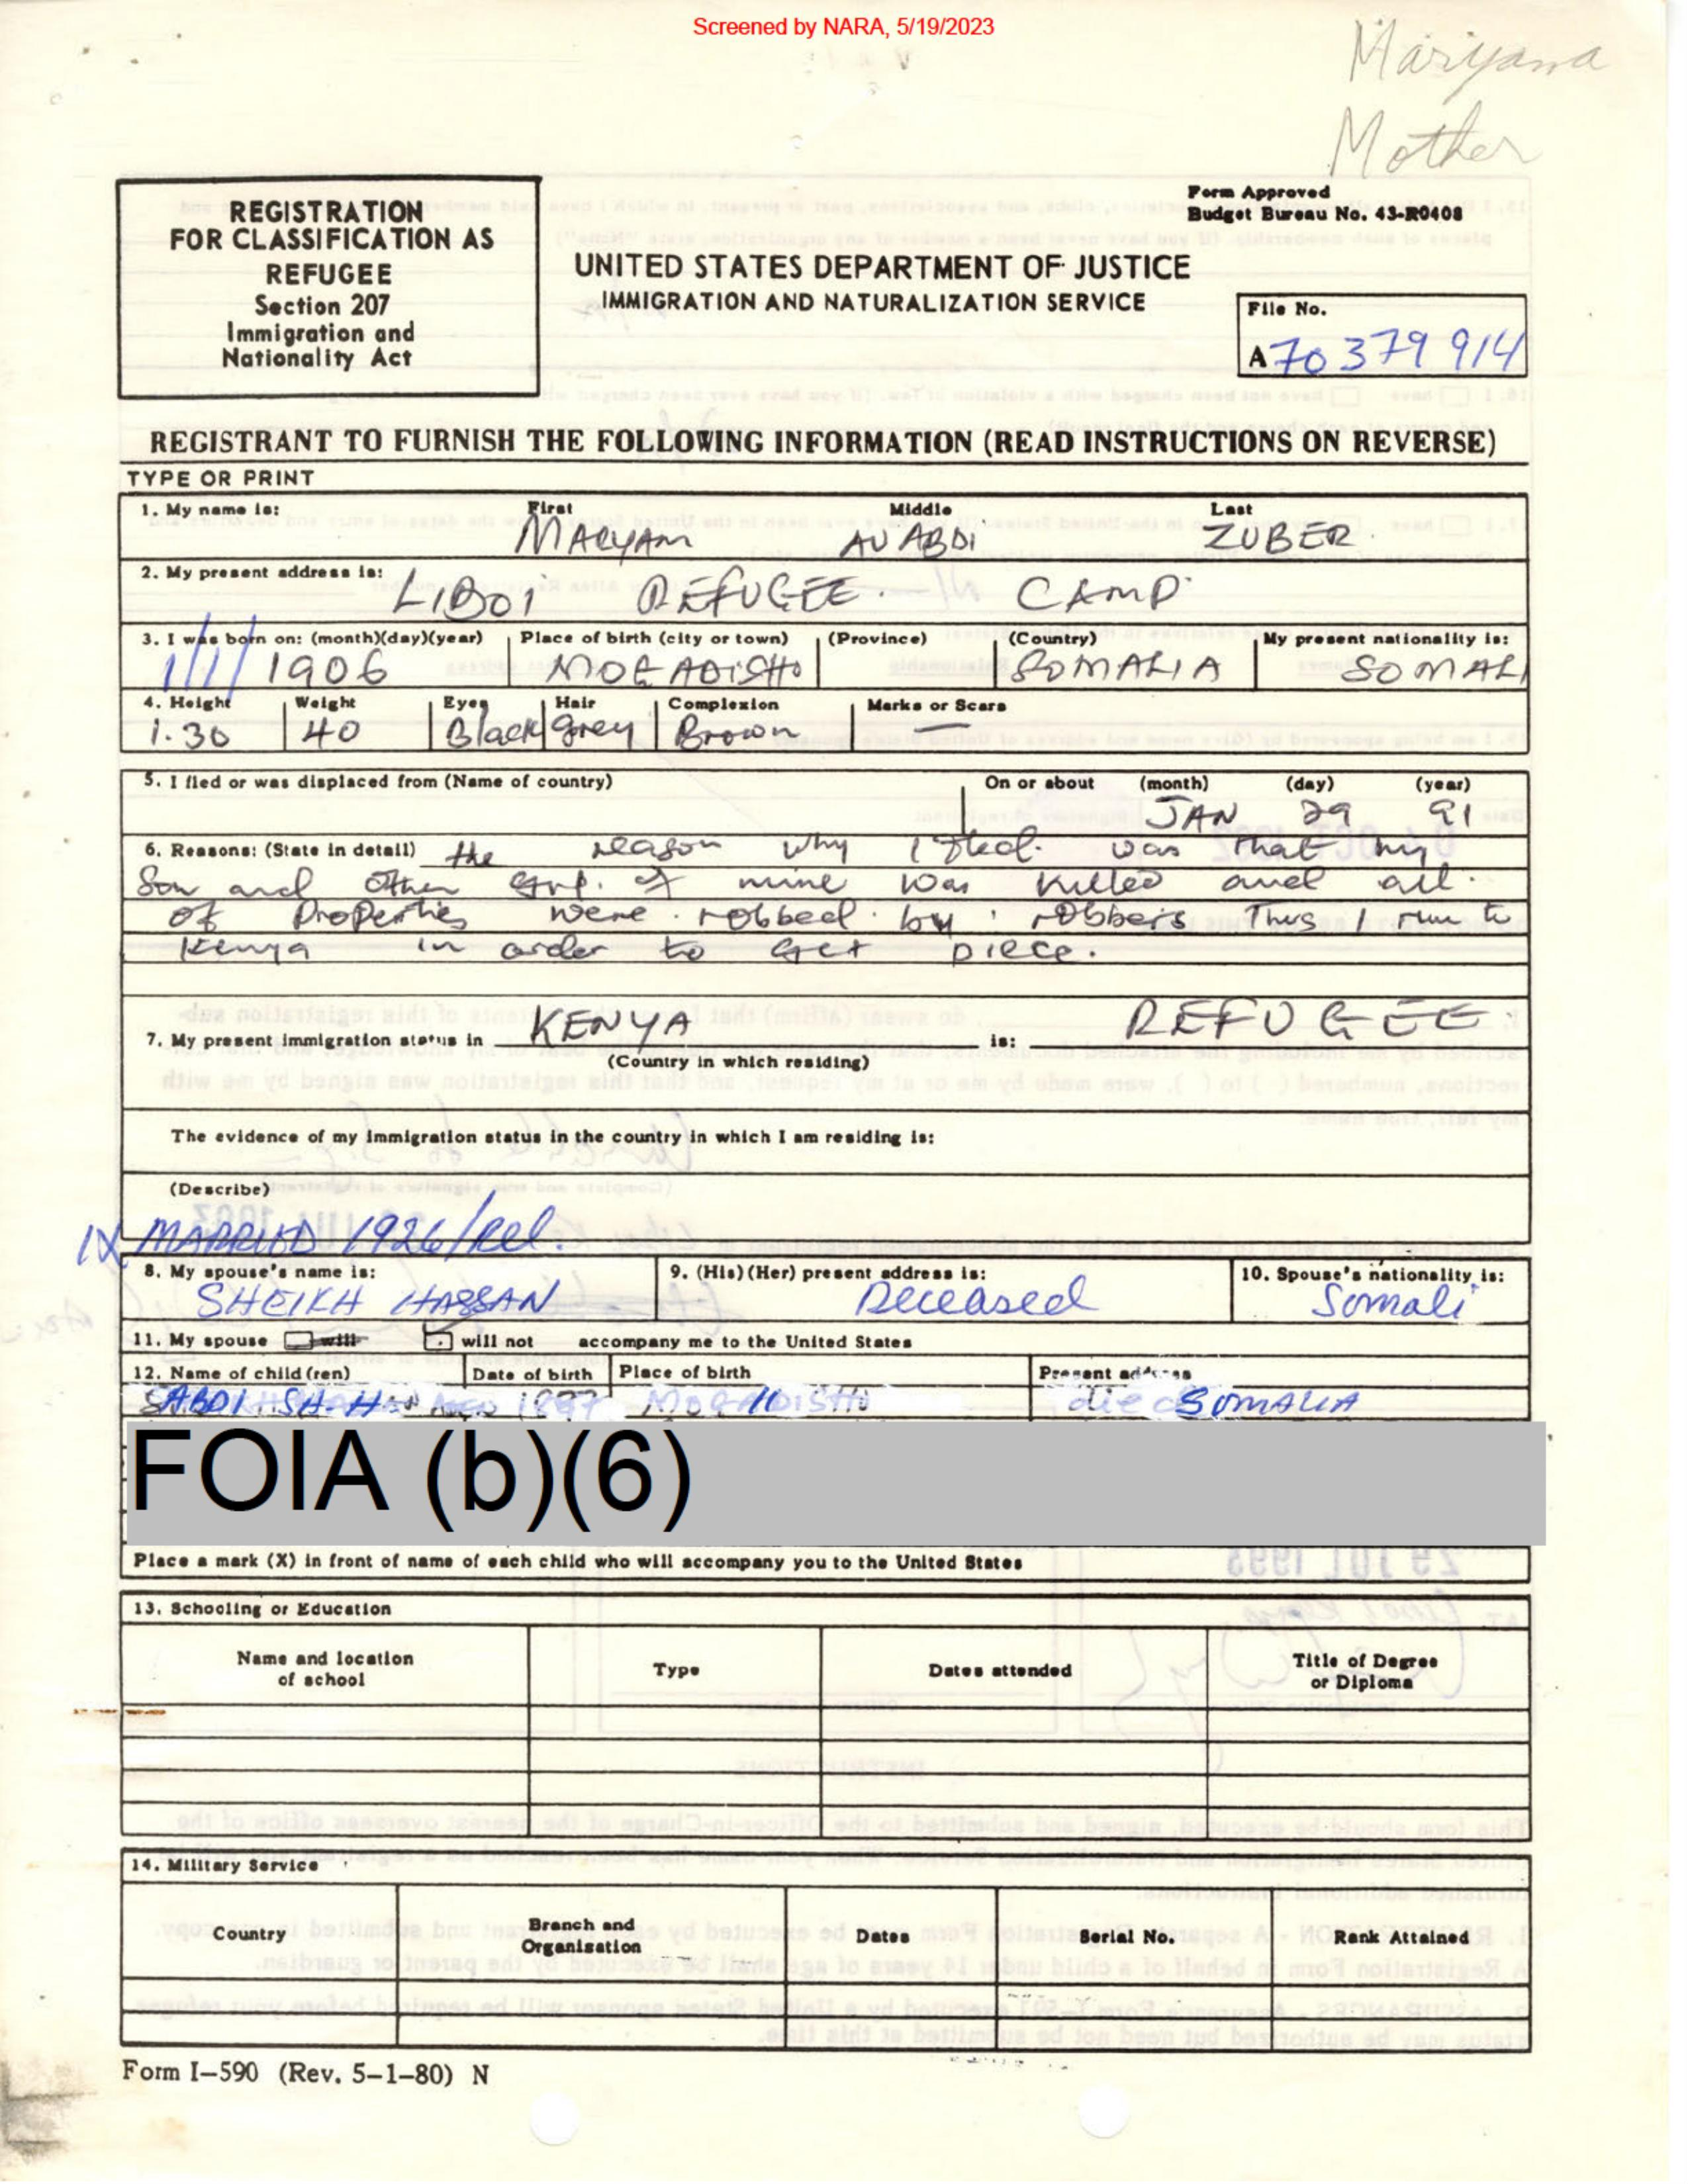 Screened by NARA, 5/19/2023
Mariyama
Mother
REGISTRATION
FOR CLASSIFICATION AS
REFUGEE
Section 207
Immigration and
Nationality Act
Form Approved
Budget Bureau No. 43-R0408
UNITED STATES DEPARTMENT OF JUSTICE
IMMIGRATION AND NATURALIZATION SERVICE
File No.
A 70 379 914
REGISTRANT TO FURNISH THE FOLLOWING INFORMATION (READ INSTRUCTIONS ON REVERSE)
TYPE OR PRINT
1. My name is: First Middle Last
MARYAM ABDI ZUBER
2. My present address is: LIBOI REFUGEE CAMP
3. I was born on: (month)(day)(year) Place of birth (city or town) (Province) (Country) My present nationality is:
1/1/1906 MOGADISHO SOMALIA SOMALI
4. Height Weight Eyes Hair Complexion Marks or Scars
1.30 40 Black grey Brown —
5. I fled or was displaced from (Name of country) On or about (month) (day) (year)
JAN 29 91
6. Reasons: (State in detail) the reason why I fled. was that my
Son and other of mine was killed and all.
of properties were robbed by robbers Thus I run to
Kenya in order to get piece.
7. My present immigration status in KENYA is: REFUGEE
(Country in which residing)
The evidence of my immigration status in the country in which I am residing is:
(Describe)
1X MARRIED 1926/Rel.
8. My spouse's name is: 9. (His)(Her) present address is: 10. Spouse's nationality is:
SHEIKH HASSAN Deceased Somali
11. My spouse will will not accompany me to the United States
12. Name of child(ren) Date of birth Place of birth Present address
SOMALIA
FOIA (b)(6)
Place a mark (X) in front of name of each child who will accompany you to the United States
13. Schooling or Education
Name and location
of school Type Dates attended Title of Degree
or Diploma
14. Military Service
Country Branch and
Organisation Dates Serial No. Rank Attained
Form I-590 (Rev. 5-1-80) N